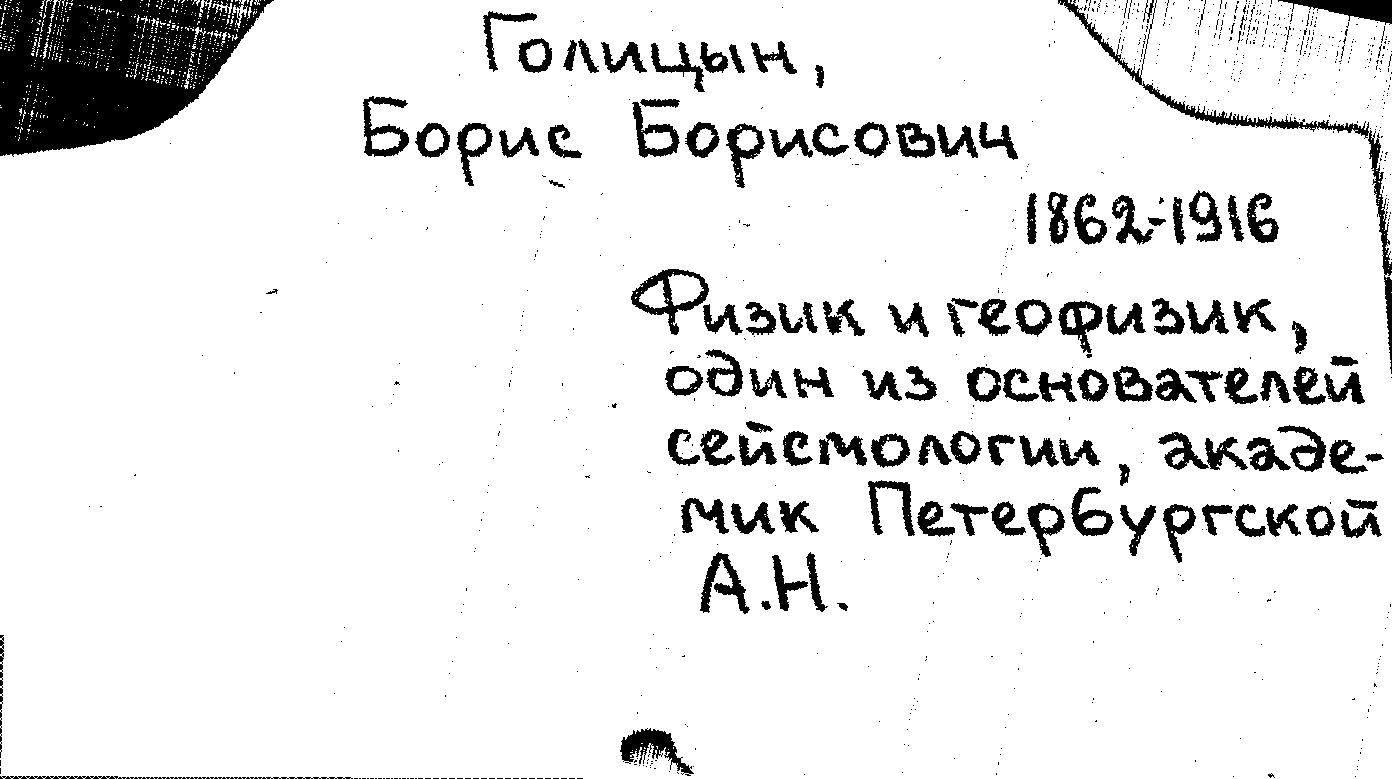 Голицын,
Борис Борисович
1862-1916
Физик и геофизик,
один из основателей
сейсмологии, акаде-
мик Петербургской
А.Н.